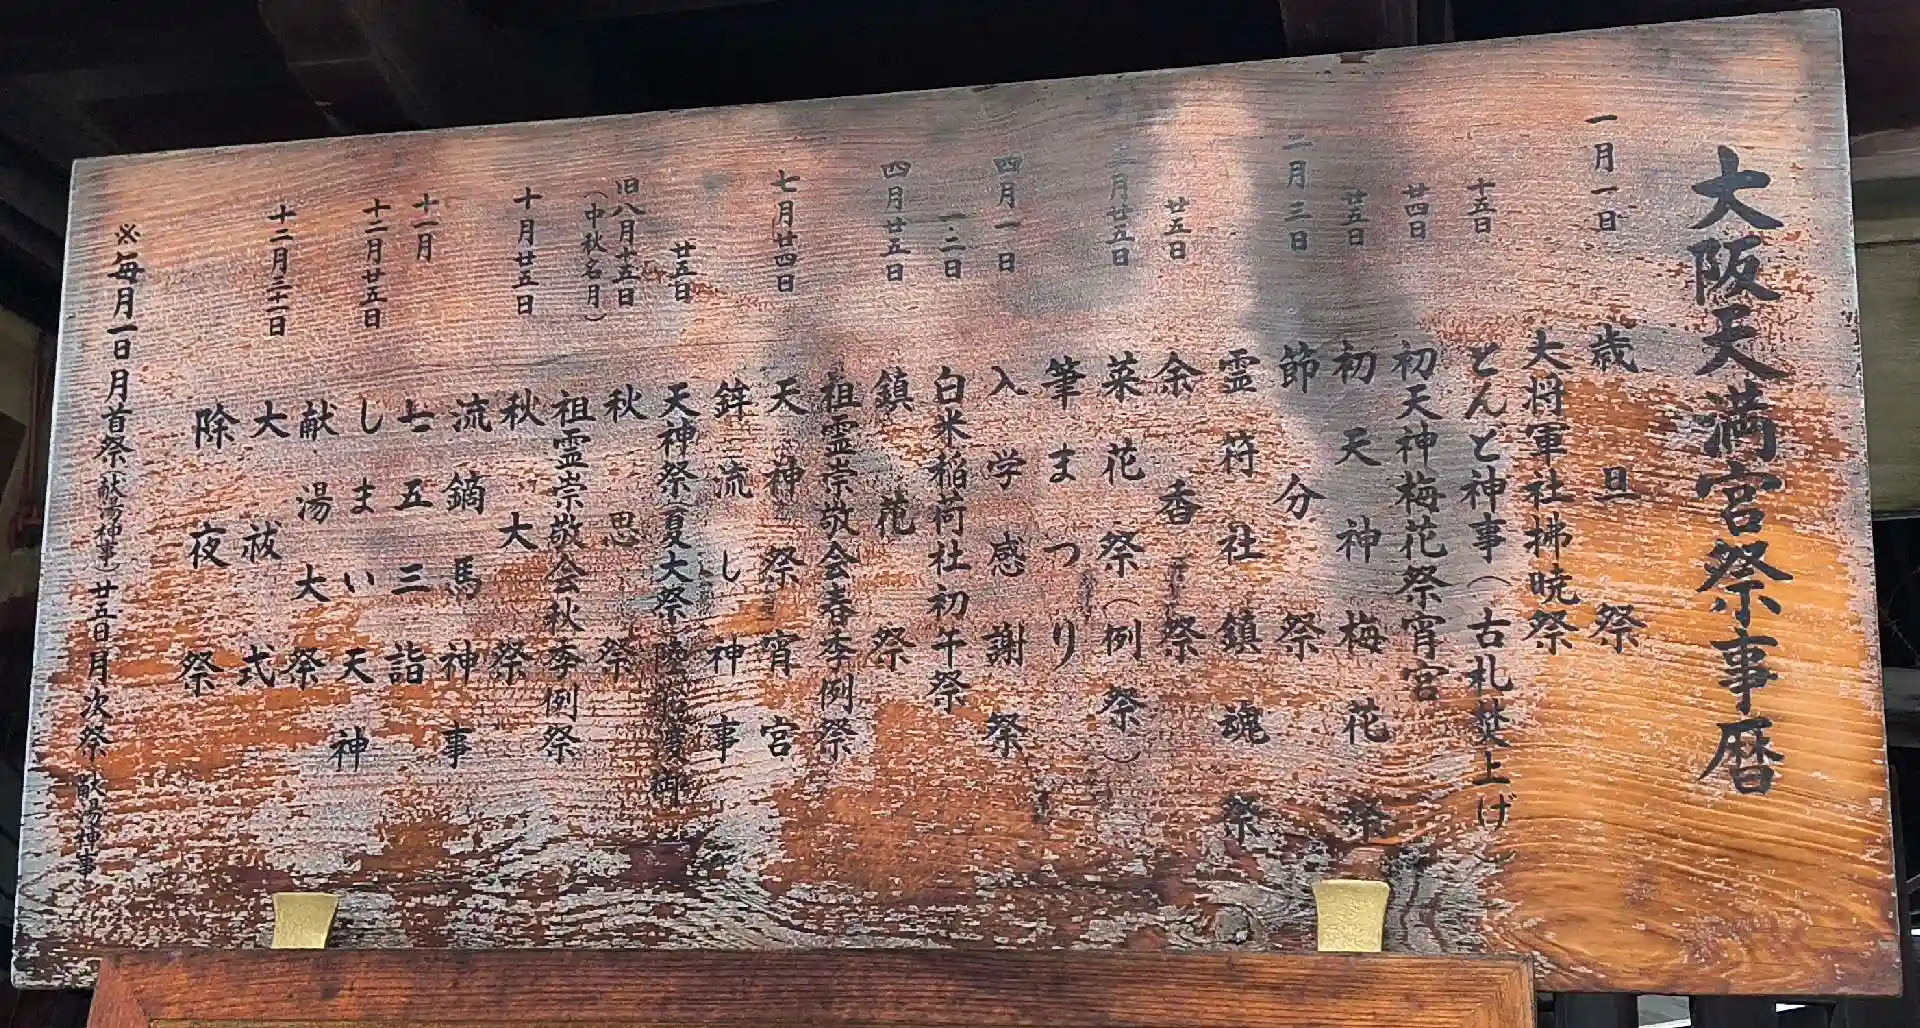 大阪天満宮祭事暦
一月一日 歳旦祭
大将軍社拂暁祭
十五日 とんど神事（古札焚上げ）
廿四日 初天神梅花祭宵宮
廿五日 初天神梅花祭
二月三日 節分祭
霊符社鎮魂祭
廿五日 余香祭
三月廿五日 菜花祭（例祭）
筆まつり
四月一日 入学感謝祭
一・二日 白米稲荷社初午祭
四月廿五日 鎮花祭
祖霊崇敬会春季例祭
七月廿四日 天神祭宵宮
鉾流し神事
廿五日 天神祭（夏大祭）陸渡御
旧八月十五日（中秋名月） 秋思祭
祖霊崇敬会秋季例祭
十月廿五日 秋大祭
流鏑馬神事
十一月 七五三詣
十二月廿五日 しまい天神
献湯大祭
十二月三十一日 大祓式
除夜祭
※毎月一日月首祭（献湯神事）廿五日月次祭 献湯神事